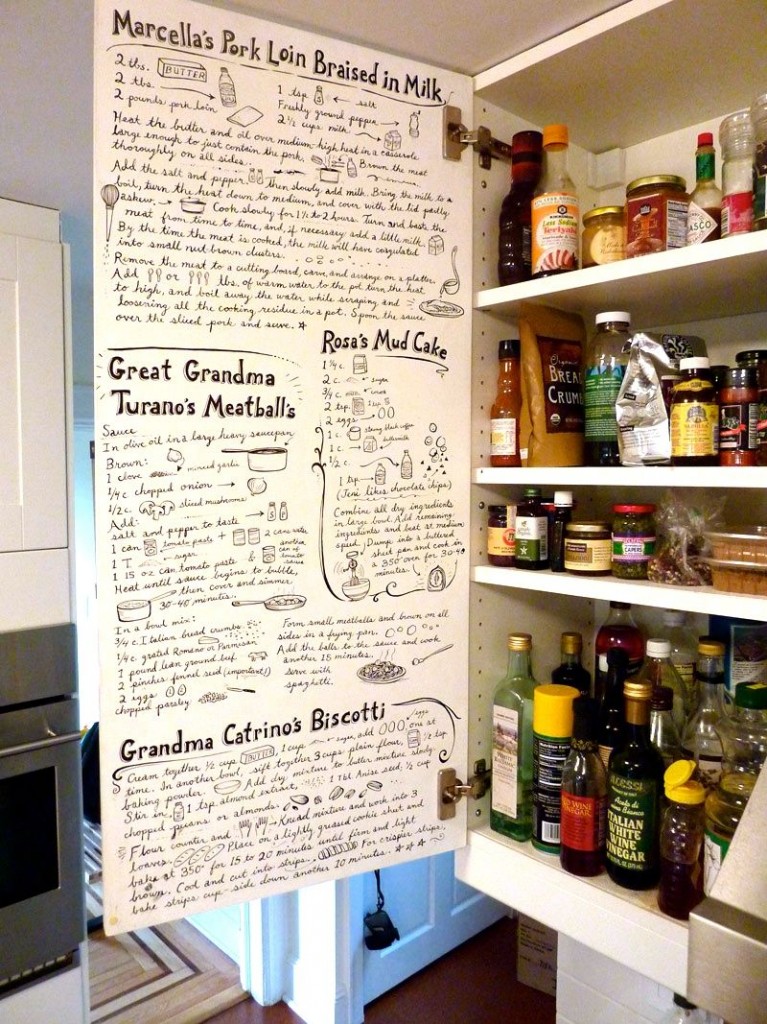 Marcella's Pork Loin Braised in Milk
2 tbs. BUTTER
2 tbs.
2 pounds pork loin
1 tsp salt
Freshly ground pepper
2 1/2 cups milk
Heat the butter and oil over medium-high heat in a casserole
large enough to just contain the pork. Brown the meat
thoroughly on all sides.
Add the salt and pepper, then slowly add milk. Bring the milk to a
boil, turn the heat down to medium, and cover with the lid partly
askew. Cook slowly for 1 1/2 to 2 hours. Turn and baste the
meat from time to time, and, if necessary add a little milk.
By the time the meat is cooked, the milk will have coagulated
into small nut brown clusters.
Remove the meat to a cutting board, carve, and arrange on a platter.
Add or tbs. of warm water to the pot turn the heat
to high, and boil away the water while scraping and
loosening all the cooking residue in a pot. Spoon the sauce
over the sliced pork and serve.
Great Grandma
Turano's Meatball's
Sauce
In olive oil in a large heavy saucepan
Brown:
1 clove minced garlic
1/4 c chopped onion
1/2 c. sliced mushrooms
Add:
salt and pepper to taste
1 can tomato paste + 2 cans water
1 T sugar
1 15 oz can tomato paste & another can of tomato sauce
Heat until sauce begins to bubble,
then cover and simmer
30-40 minutes.
In a bowl mix:
3/4 c. Italian bread crumbs
1/4 c. grated Romano or Parmesan
1 pound lean ground beef
2 pinches fennel seed (important!)
2 eggs
chopped parsley
Form small meatballs and brown on all
sides in a frying pan.
Add the balls to the sauce and cook
another 15 minutes.
serve with
spaghetti.
Rosa's Mud Cake
1 3/4 c.
2 c. sugar
3/4 c.
2 tsp. 1 tsp. S
2 eggs
1 c. strong black coffee
1 c. buttermilk
1/2 c.
1 tsp
(Jeni likes chocolate chips)
Combine all dry ingredients
in large bowl. Add remaining
ingredients and beat at medium
speed. Dump into a buttered
sheet pan and cook in
a 350° oven for 30-40
minutes.
Grandma Catrino's Biscotti
Cream together 1/2 cup BUTTER, 1 cup sugar, add eggs one at
time. In another bowl, sift together 3 cups plain flour, 1/2 tsp.
baking powder. Add dry mixture to butter mixture slowly.
Stir in 1 tsp almond extract, 1 tbl. Anise seed, 1/2 cup
chopped pecans or almonds. Knead mixture and work into 3
Flour counter and
loaves. Place on a lightly greased cookie sheet and
bake at 350° for 15 to 20 minutes until firm and light
brown. Cool and cut into strips. For crispier strips,
bake strips cup-side down another 10 minutes.
KIKKOMAN
Less Sodium
Teriyaki
ASCO
Organic
BREAD
CRUMB
CAPERS
RED WINE
VINEGAR
ALESSI
ITALIAN
WHITE
WINE
VINEGAR